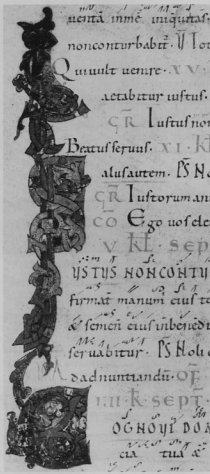 uentā inme iniquitas
non conturbabit. V Io
Qui uult uenire. XV.
aetabitur iustus.
GR Iustus non
Beatus seruus. XI. KL
alus autem. PS No
GR Iustorum an
CO Ego uos ele
V KL. SEPT
USTUS NON CONTU
firmat manum eius
& semen eius inbened
seruabitur. PS Noli
dad nuntiandū. OF
III K SEPT.
OGNOUI DO
cia tua &